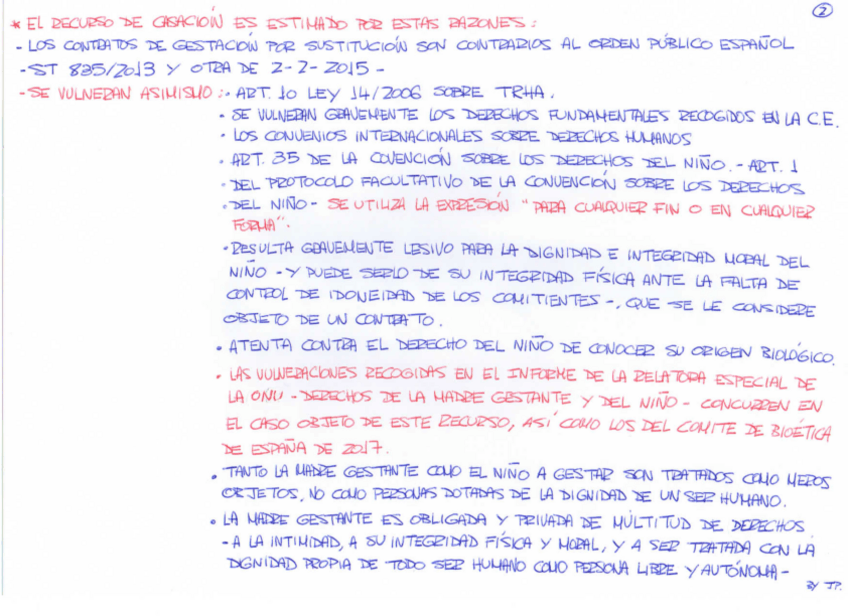 2
* EL RECURSO DE CASACIÓN ES ESTIMADO POR ESTAS RAZONES:
- LOS CONTRATOS DE GESTACIÓN POR SUSTITUCIÓN SON CONTRARIOS AL ORDEN PÚBLICO ESPAÑOL
- ST 835/2013 Y OTRA DE 2-2-2015 -
- SE VULNERAN ASIMISMO: · ART. 10 LEY 14/2006 SOBRE TRHA.
· SE VULNERAN GRAVEMENTE LOS DERECHOS FUNDAMENTALES RECOGIDOS EN LA C.E.
· LOS CONVENIOS INTERNACIONALES SOBRE DERECHOS HUMANOS
· ART. 35 DE LA COVENCIÓN SOBRE LOS DERECHOS DEL NIÑO. - ART. 1
· DEL PROTOCOLO FACULTATIVO DE LA CONVENCIÓN SOBRE LOS DERECHOS
· DEL NIÑO - SE UTILIZA LA EXPRESIÓN "PARA CUALQUIER FIN O EN CUALQUIER
FORMA".
· RESULTA GRAVEMENTE LESIVO PARA LA DIGNIDAD E INTEGRIDAD MORAL DEL
NIÑO - Y PUEDE SERLO DE SU INTEGRIDAD FÍSICA ANTE LA FALTA DE
CONTROL DE IDONEIDAD DE LOS COMITIENTES -, QUE SE LE CONSIDERE
OBJETO DE UN CONTRATO.
· ATENTA CONTRA EL DERECHO DEL NIÑO DE CONOCER SU ORIGEN BIOLÓGICO.
· LAS VULNERACIONES RECOGIDAS EN EL INFORME DE LA RELATORA ESPECIAL DE
LA ONU - DERECHOS DE LA MADRE GESTANTE Y DEL NIÑO - CONCURREN EN
EL CASO OBJETO DE ESTE RECURSO, ASÍ COMO LOS DEL COMITE DE BIOÉTICA
DE ESPAÑA DE 2017.
· TANTO LA MADRE GESTANTE COMO EL NIÑO A GESTAR SON TRATADOS COMO MEROS
OBJETOS, NO COMO PERSONAS DOTADAS DE LA DIGNIDAD DE UN SER HUMANO.
· LA MADRE GESTANTE ES OBLIGADA Y PRIVADA DE MÚLTITUD DE DERECHOS
- A LA INTIMIDAD, A SU INTEGRIDAD FÍSICA Y MORAL, Y A SER TRATADA CON LA
DIGNIDAD PROPIA DE TODO SER HUMANO COMO PERSONA LIBRE Y AUTÓNOMA -
BY JP.